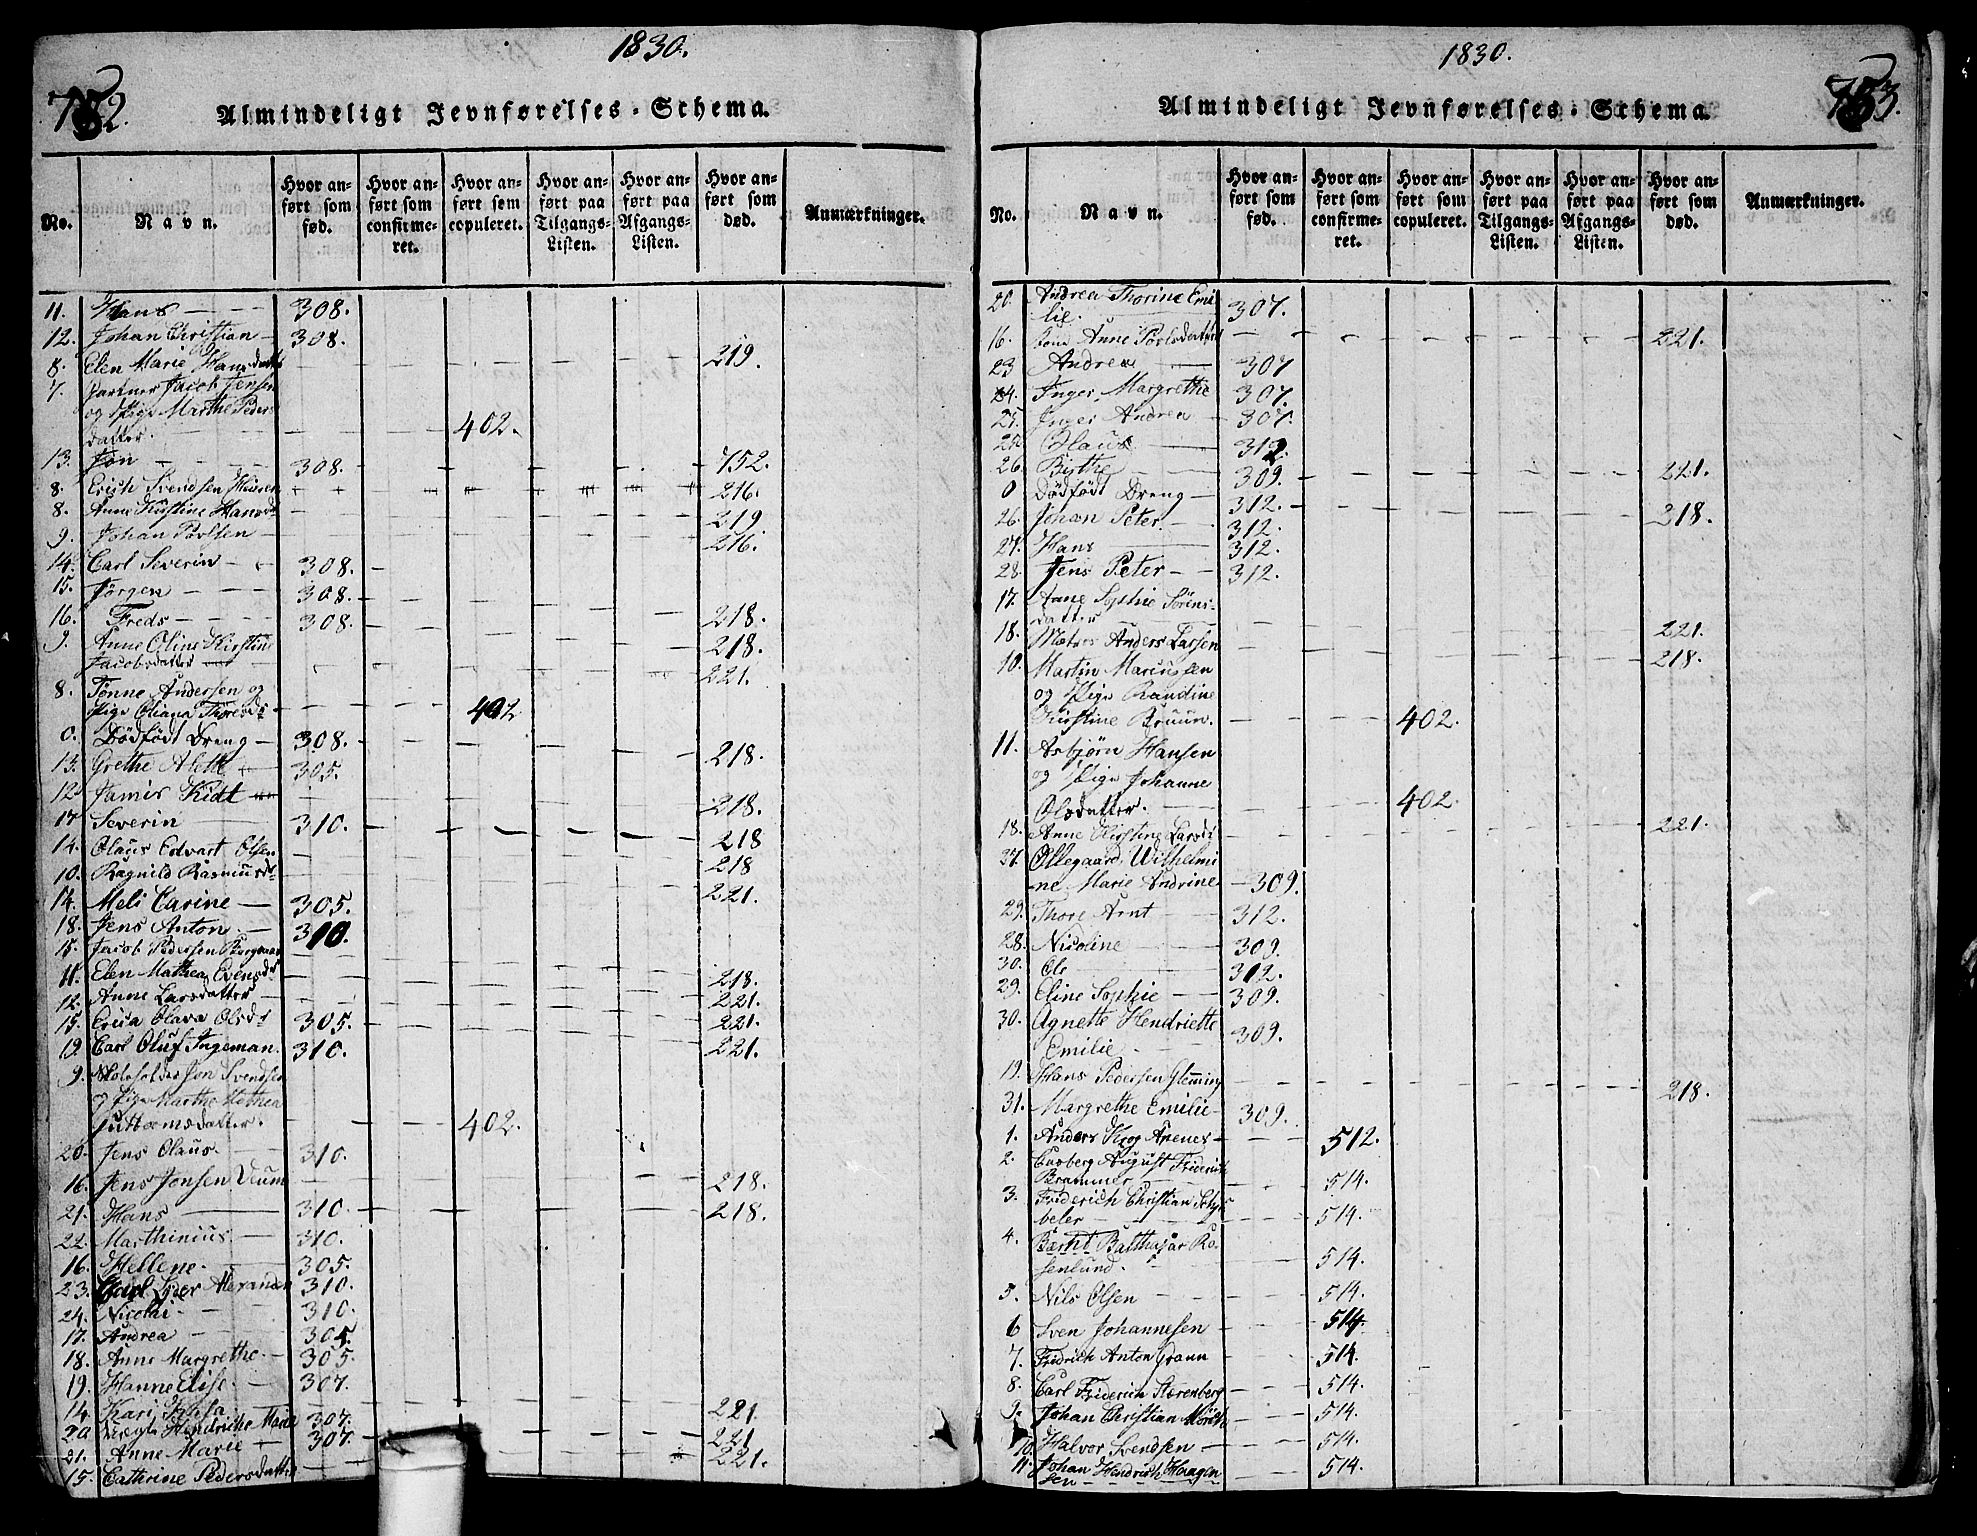 1830.
752.
Almindeligt Jevnførelses-Schema.
No.
Navn.
Hvor an-
ført som
fød.
Hvor an-
ført som
confirme-
ret.
Hvor an-
ført som
copuleret.
Hvor an-
ført paa
Tilgangs-
Listen.
Hvor an-
ført paa
Afgangs-
Listen.
Hvor an-
ført som
død.
Anmærkninger.
11. Hans 308.
12. Johan Christian 308.
8. Elen Marie Hansdattr 219.
7. Gartner Jacob Jensen
og Pige Marthe Peders
datter. 402.
13. Jon 308. 752.
8. Erich Svendsen 216.
8. Anne Kirstine Hansd 219
9. Johan Povlsen 216.
14. Carl Severin 308.
15. Jörgen 308.
16. Freds 308. 218.
9. Anne Oline Kirstine
Jacobsdatter 218.
8. Tønne Andersen og 221.
Pige Oliana Thoresd 402
0. Dödfödt Dreng 308. 218.
13. Grethe Alette 305.
12 Jamis Kidt 218.
17 Severin 310. 218
14. Olaus Edvart Olsen 218
10. Ragnild Rasmusd 221.
14. Meli Carine 305.
18. Jens Anton. 310.
15. Jacob Pedersen 218.
11. Elen Mathea Evensd 221.
12. Anne Larsdatter 221.
15. Erica Olava Olsd 305. 221.
19. Carl Oluf Ingeman. 310.
9. Jon Svendsen
og Pige Marthe Mathea
Guttormsdatter. 402.
20. Jens Olaus 310.
16. Jens Jonsen Veum 218.
21. Hans 310. 218.
22. Marthinius 310.
16. Hellene. 305.
23. Carl Lyder Alexander 310.
24. Nicolai 310.
17. Andrea 305.
18. Anne Margrethe. 305.
19. Hanne Elise. 307.
14. Kari 221.
20 Hendriche Marie 307.
21. Anne Marie 307. 221
15. Cathrine Pedersdatter 221.
1830.
753.
Almindeligt Jevnførelses-Schema.
No.
Navn.
Hvor an-
ført som
fød.
Hvor an-
ført som
confirme-
ret.
Hvor an-
ført som
copuleret.
Hvor an-
ført paa
Tilgangs-
Listen.
Hvor an-
ført paa
Afgangs-
Listen.
Hvor an-
ført som
død.
Anmærkninger.
20. Andrea Thorine Emi-
lie. 307.
16. Anne Povlsdatter 221.
23 Andrea 307
24. Inger Margrethe 307.
25. Inger Andrea 307.
25 Olaus 312
26. Birthe 309. 221.
0 Dödfödt Dreng 312. 218.
26. Johan Peter. 312.
27. Hans 312.
28. Jens Peter 312.
17. Anne Sophie Sörens-
datter 221.
18. Anders Larsen 218.
10. Martin Marcussen
og Pige Randine
Kirstine Bruun. 402.
11. Asbjørn Hansen
og Pige Johanne
Olsdatter. 402.
18. Anne Kirstine Larsd 221.
27. Ollegaard Wilhelmi
ne Marie Andrine 309.
29. Thore Arnt 312.
28. Nicoline 309.
30. Ole 312.
29. Eline Sophie 309.
30. Agnette Hendriette
Emilie 309.
19. Hans Pedersen Gleming 218.
31. Margrethe Emilie 309.
1. Anders Krog Arenes 512.
2. Casberg August Friderich
Brammer 514.
3. Friderich Christian
514.
4. Bærnt Balthajar Ro
senlund. 514.
5. Nils Olsen 514.
6 Sven Johannesen 514.
7. Fridrich Anton Grann 514.
8. Carl Friderich Starenberg 514.
9. Johan Christian 514.
10. Halvor Svendsen 514.
11. Johan Hendrich Haagen
sen 514.